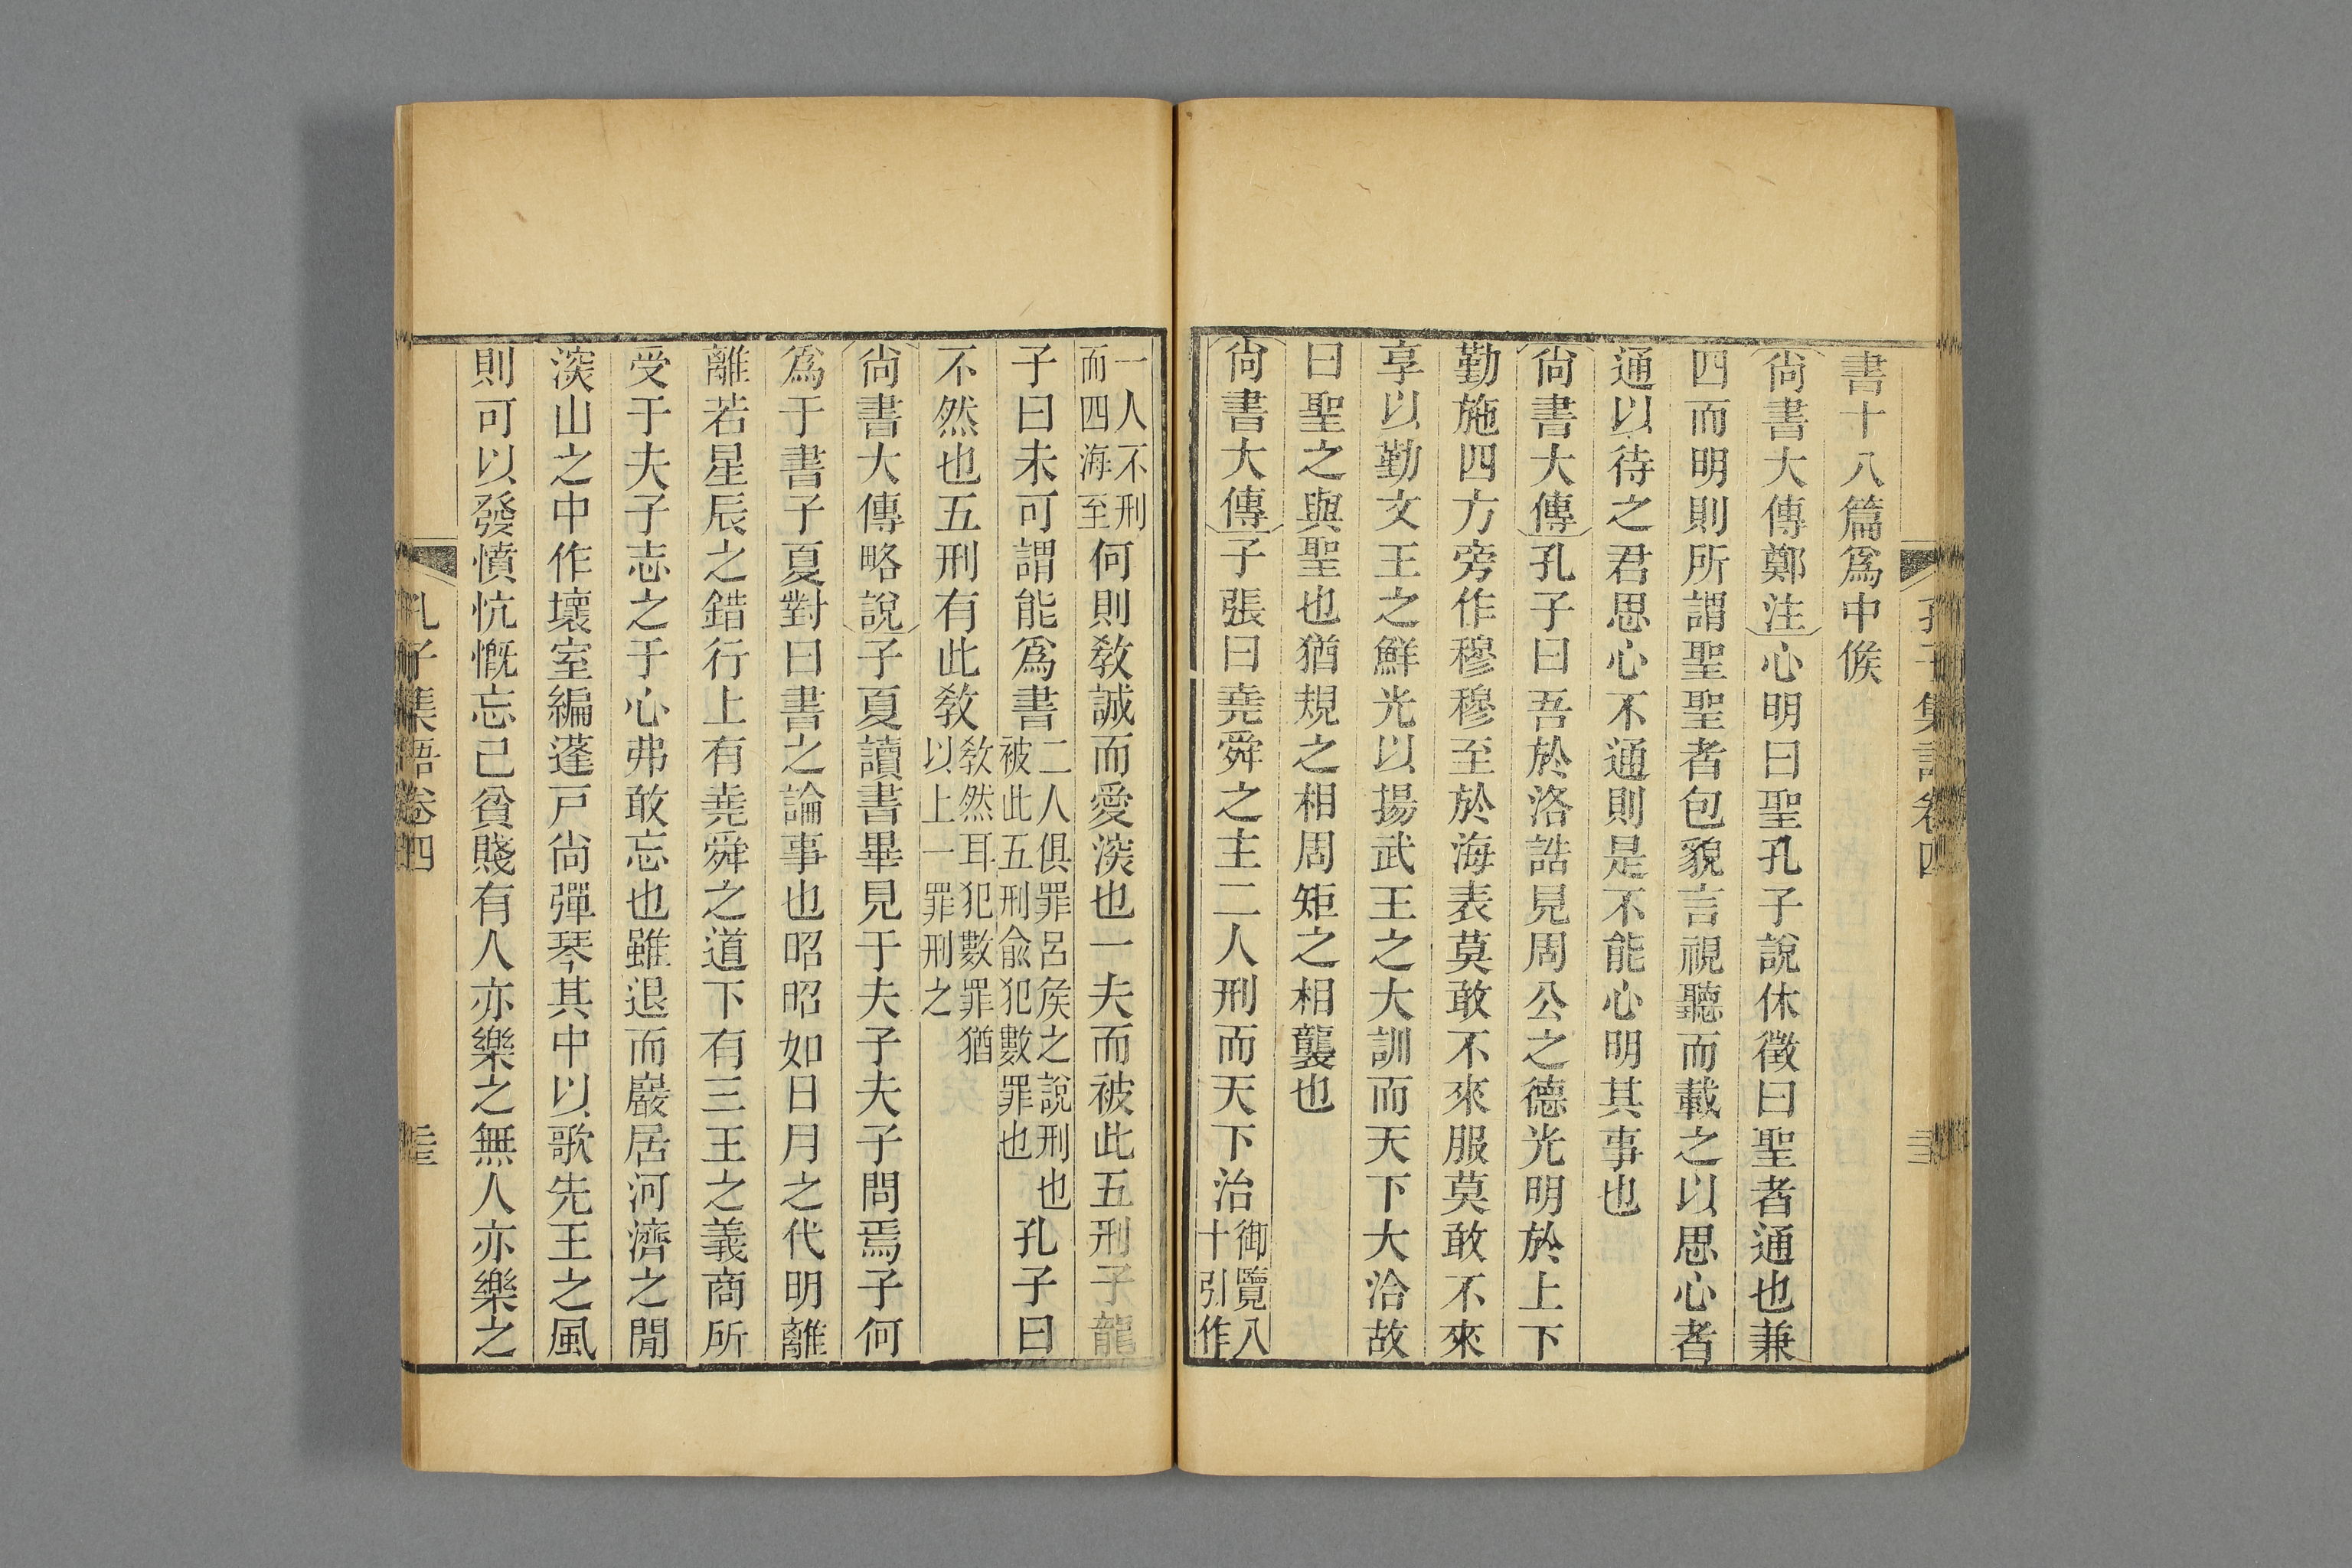 書十八篇爲中候
尙書大傳鄭注心明曰聖孔子說休徵曰聖者通也兼
四而明則所謂聖聖者包貌言視聽而載之以思心者
通以待之君思心不通則是不能心明其事也
尙書大傳孔子曰吾於洛誥見周公之德光明於上下
勤施四方旁作穆穆至於海表莫敢不來服莫敢不來
享以勤文王之鮮光以揚武王之大訓而天下大洽故
曰聖之與聖也猶規之相周矩之相襲也
尙書大傳子張曰堯舜之主二人刑而天下治御覽八
十引作
一人不刑
而四海至何則敎誠而愛深也一夫而被此五刑子龍
子曰未可謂能爲書二人俱罪呂侯之說刑也
被此五刑兪犯數罪也孔子曰
不然也五刑有此敎敎然耳犯數罪猶
以上一罪刑之
尙書大傳略說子夏讀書畢見于夫子夫子問焉子何
爲于書子夏對曰書之論事也昭昭如日月之代明離
離若星辰之錯行上有堯舜之道下有三王之義商所
受于夫子志之于心弗敢忘也雖退而巖居河濟之閒
深山之中作壞室編蓬戸尙彈琴其中以歌先王之風
則可以發憤忼慨忘己貧賤有人亦樂之無人亦樂之
孔子集語卷四